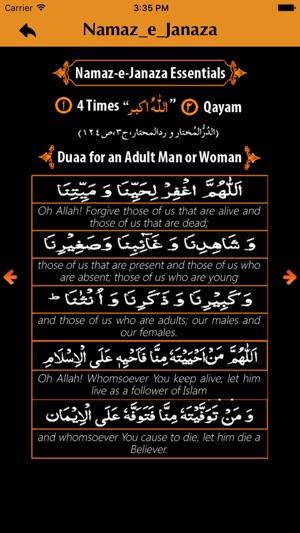 Carrier 3:35 PM
Namaz_e_Janaza
Namaz-e-Janaza Essentials
۱ 4 Times “اَللّٰهُ اکبر” ۲ Qayam
(الدُّرُّالمُختار و ردالمحتار،ج۳،ص۱۲٤)
Duaa for an Adult Man or Woman
اَللّٰهُمَّ اغْفِرْ لِحَيِّنَا وَ مَيِّتِنَا
Oh Allah! Forgive those of us that are alive and
those of us that are dead;
وَ شَاهِدِنَا وَ غَآئِبِنَا وَصَغِيْرِنَا
those of us that are present and those of us who
are absent; those of us who are young
وَ كَبِيْرِنَا وَ ذَكَرِنَا وَ اُنْثٰنَا ط
and those of us who are adults; our males and
our females.
اَللّٰهُمَّ مَنْ اَحْيَيْتَهٗ مِنَّا فَاَحْيِهٖ عَلَى الْاِسْلَامِ
Oh Allah! Whomsoever You keep alive, let him
live as a follower of Islam
وَ مَنْ تَوَفَّيْتَهٗ مِنَّا فَتَوَفَّهٗ عَلَى الْاِيْمَانِ
and whomsoever You cause to die, let him die a
Believer.